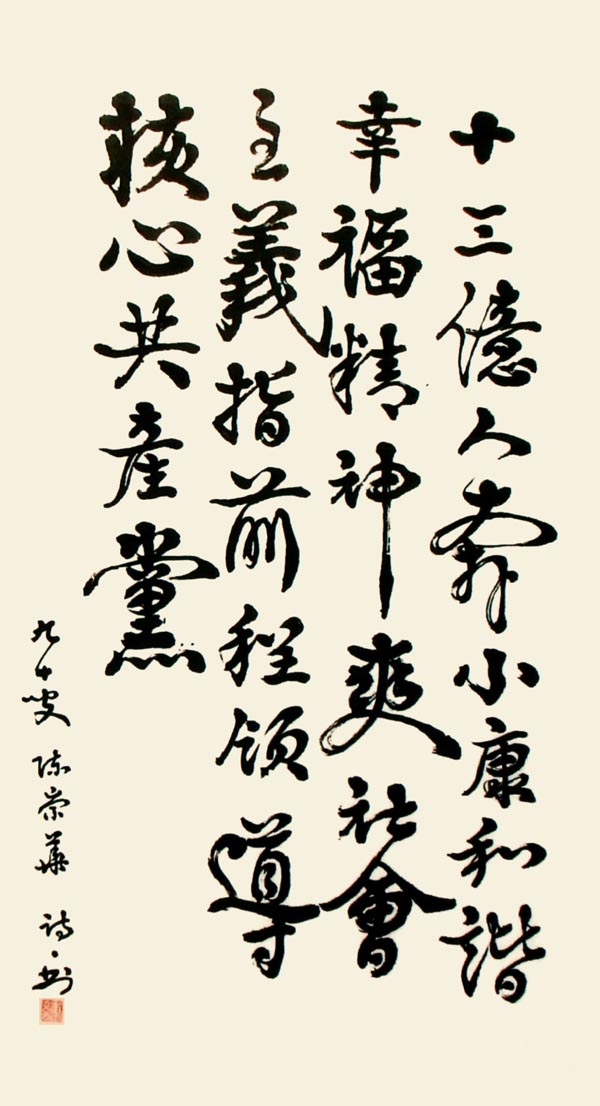 十三億人奔小康和諧
幸福精神爽社會
主義指前程領導
核心共產黨
九十叟 陈崇華 詩书